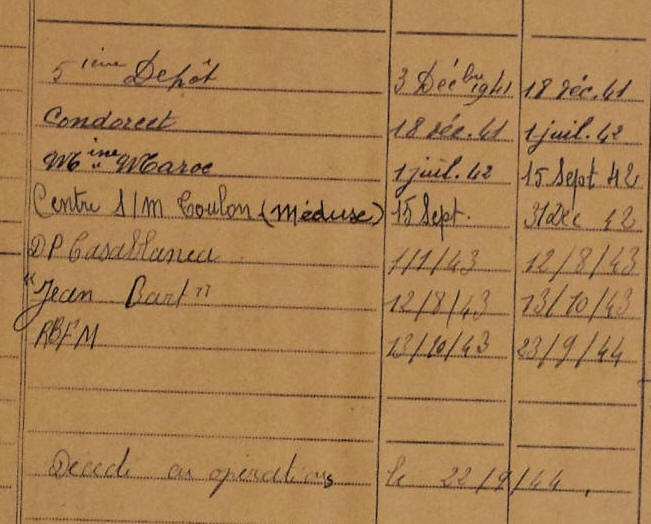 5ième Depôt 3 Décbre 1941 18 déc. 41
Condorcet 18 déc. 41 1 juil. 42
Mine Maroc 1 juil. 42 15 Sept 42
Centre S/M Toulon (Méduse) 15 Sept. 31 Dec 42
DP Casablanca 1/1/43 12/8/43
"Jean Bart" 12/8/43 13/10/43
RBFM 13/10/43 23/9/44
Décédé en operations le 22/9/44.